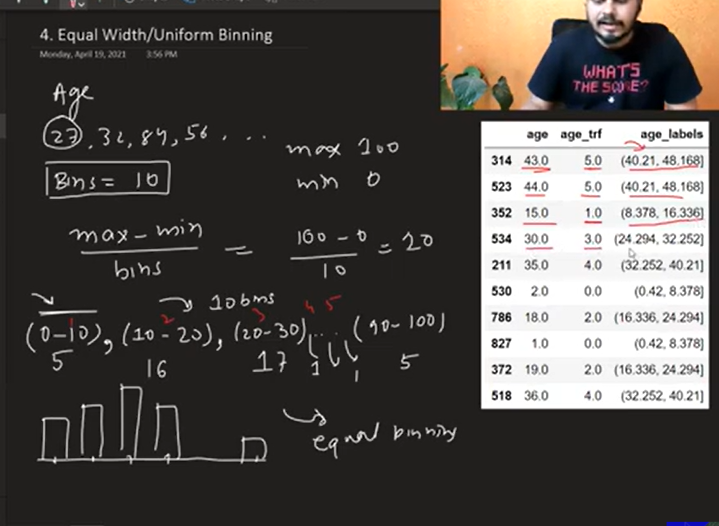 4. Equal Width/Uniform Binning
Monday, April 19, 2021 3:56 PM
Age
27, 32, 84, 56, ...
max 100
Bins = 10
min 0
max - min / bins = 100 - 0 / 10 = 20
10 bins
2 3 4 5
(0-10), (10-20), (20-30) ... (90-100)
5 16 17 5
equal binning
WHAT'S
THE SCORE?
age age_trf age_labels
314 43.0 5.0 (40.21, 48.168]
523 44.0 5.0 (40.21, 48.168]
352 15.0 1.0 (8.378, 16.336]
534 30.0 3.0 (24.294, 32.252]
211 35.0 4.0 (32.252, 40.21]
530 2.0 0.0 (0.42, 8.378]
786 18.0 2.0 (16.336, 24.294]
827 1.0 0.0 (0.42, 8.378]
372 19.0 2.0 (16.336, 24.294]
518 36.0 4.0 (32.252, 40.21]